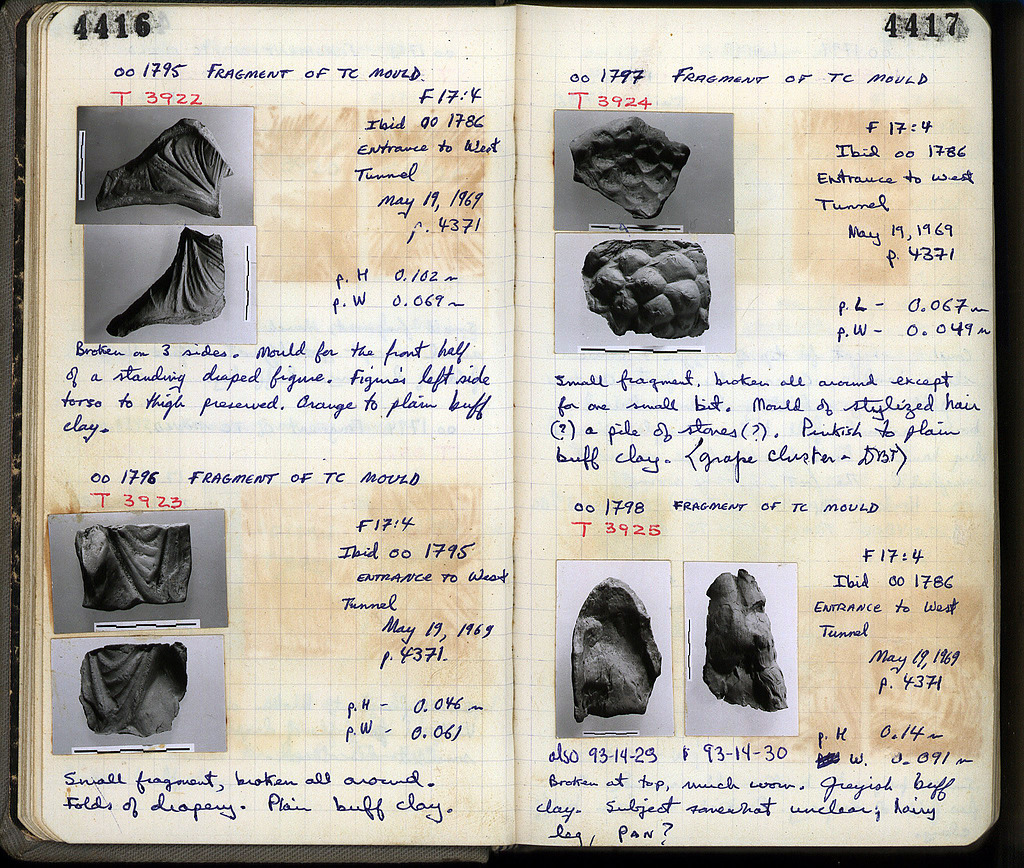 4416
oo 1795 FRAGMENT OF TC MOULD.
T 3922
F 17:4
Ibid oo 1786
Entrance to West
Tunnel
May 19, 1969
p. 4371
p. H 0.102 m
p. W 0.069 m
Broken on 3 sides. Mould for the front half
of a standing draped figure. Figure's left side
torso to thigh preserved. Orange to plain buff
clay.
oo 1796 FRAGMENT OF TC MOULD
T 3923
F 17:4
Ibid oo 1795
ENTRANCE TO West
Tunnel
May 19, 1969
p. 4371.
p. H - 0.046 m
p. W - 0.061
Small fragment, broken all around.
Folds of drapery. Plain buff clay.
4417
oo 1797 FRAGMENT OF TC MOULD
T 3924
F 17:4
Ibid oo 1786
Entrance to West
Tunnel
May 19, 1969
p. 4371
p. L - 0.067 m
p. W - 0.049 m
Small fragment, broken all around except
for one small bit. Mould of stylized hair
(?) a pile of stones (?). Pinkish to plain
buff clay. (grape cluster - DBT)
oo 1798 FRAGMENT OF TC MOULD
T 3925
F 17:4
Ibid oo 1786
ENTRANCE TO West
Tunnel
May 19, 1969
p. 4371
p. H 0.14 m
W. 0.091 m
also 93-14-29 & 93-14-30
Broken at top, much worn. Greyish buff
clay. Subject somewhat unclear; hairy
leg, PAN?